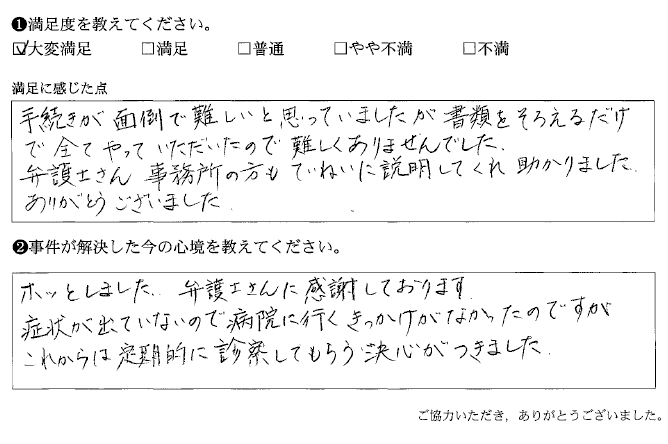 ❶満足度を教えてください。
☑大変満足 □満足 □普通 □やや不満 □不満
満足に感じた点
手続きが面倒で難しいと思っていましたが書類をそろえるだけ
で全てやっていただいたので難しくありませんでした。
弁護士さん 事務所の方もていねいに説明してくれ助かりました。
ありがとうございました
❷事件が解決した今の心境を教えてください。
ホッとしました。弁護士さんに感謝しております。
症状が出ていないので病院に行くきっかけがなかったのですが
これからは定期的に診察してもらう決心がつきました。
ご協力いただき，ありがとうございました。